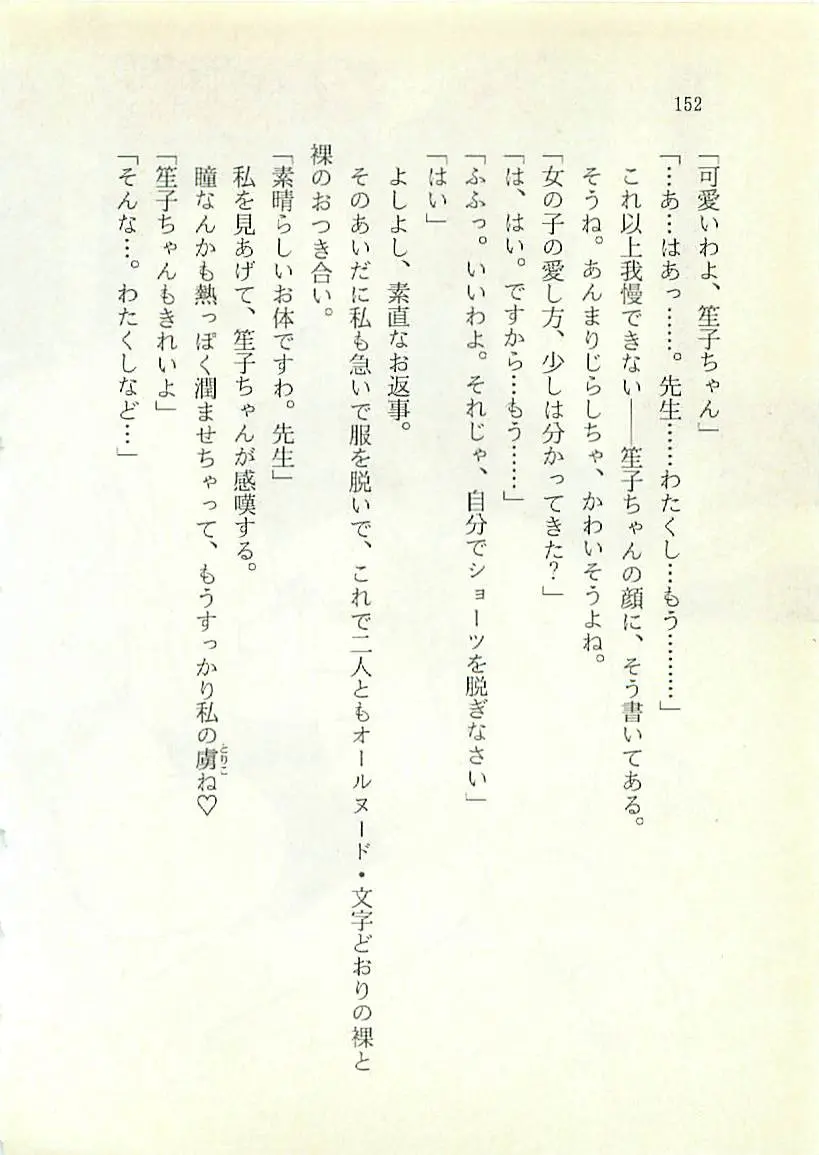 152
「可愛いわよ、笙子ちゃん」
「…あ…はあっ……。先生……わたくし…もう………」
これ以上我慢できない──笙子ちゃんの顔に、そう書いてある。
そうね。あんまりじらしちゃ、かわいそうよね。
「女の子の愛し方、少しは分かってきた?」
「は、はい。ですから…もう……」
「ふふっ。いいわよ。それじゃ、自分でショーツを脱ぎなさい」
「はい」
よしよし、素直なお返事。
そのあいだに私も急いで服を脱いで、これで二人ともオールヌード・文字どおりの裸と
裸のおつき合い。
「素晴らしいお体ですわ。先生」
私を見あげて、笙子ちゃんが感嘆する。
瞳なんかも熱っぽく潤ませちゃって、もうすっかり私の虜ね♡
とりこ
「笙子ちゃんもきれいよ」
「そんな…。わたくしなど…」